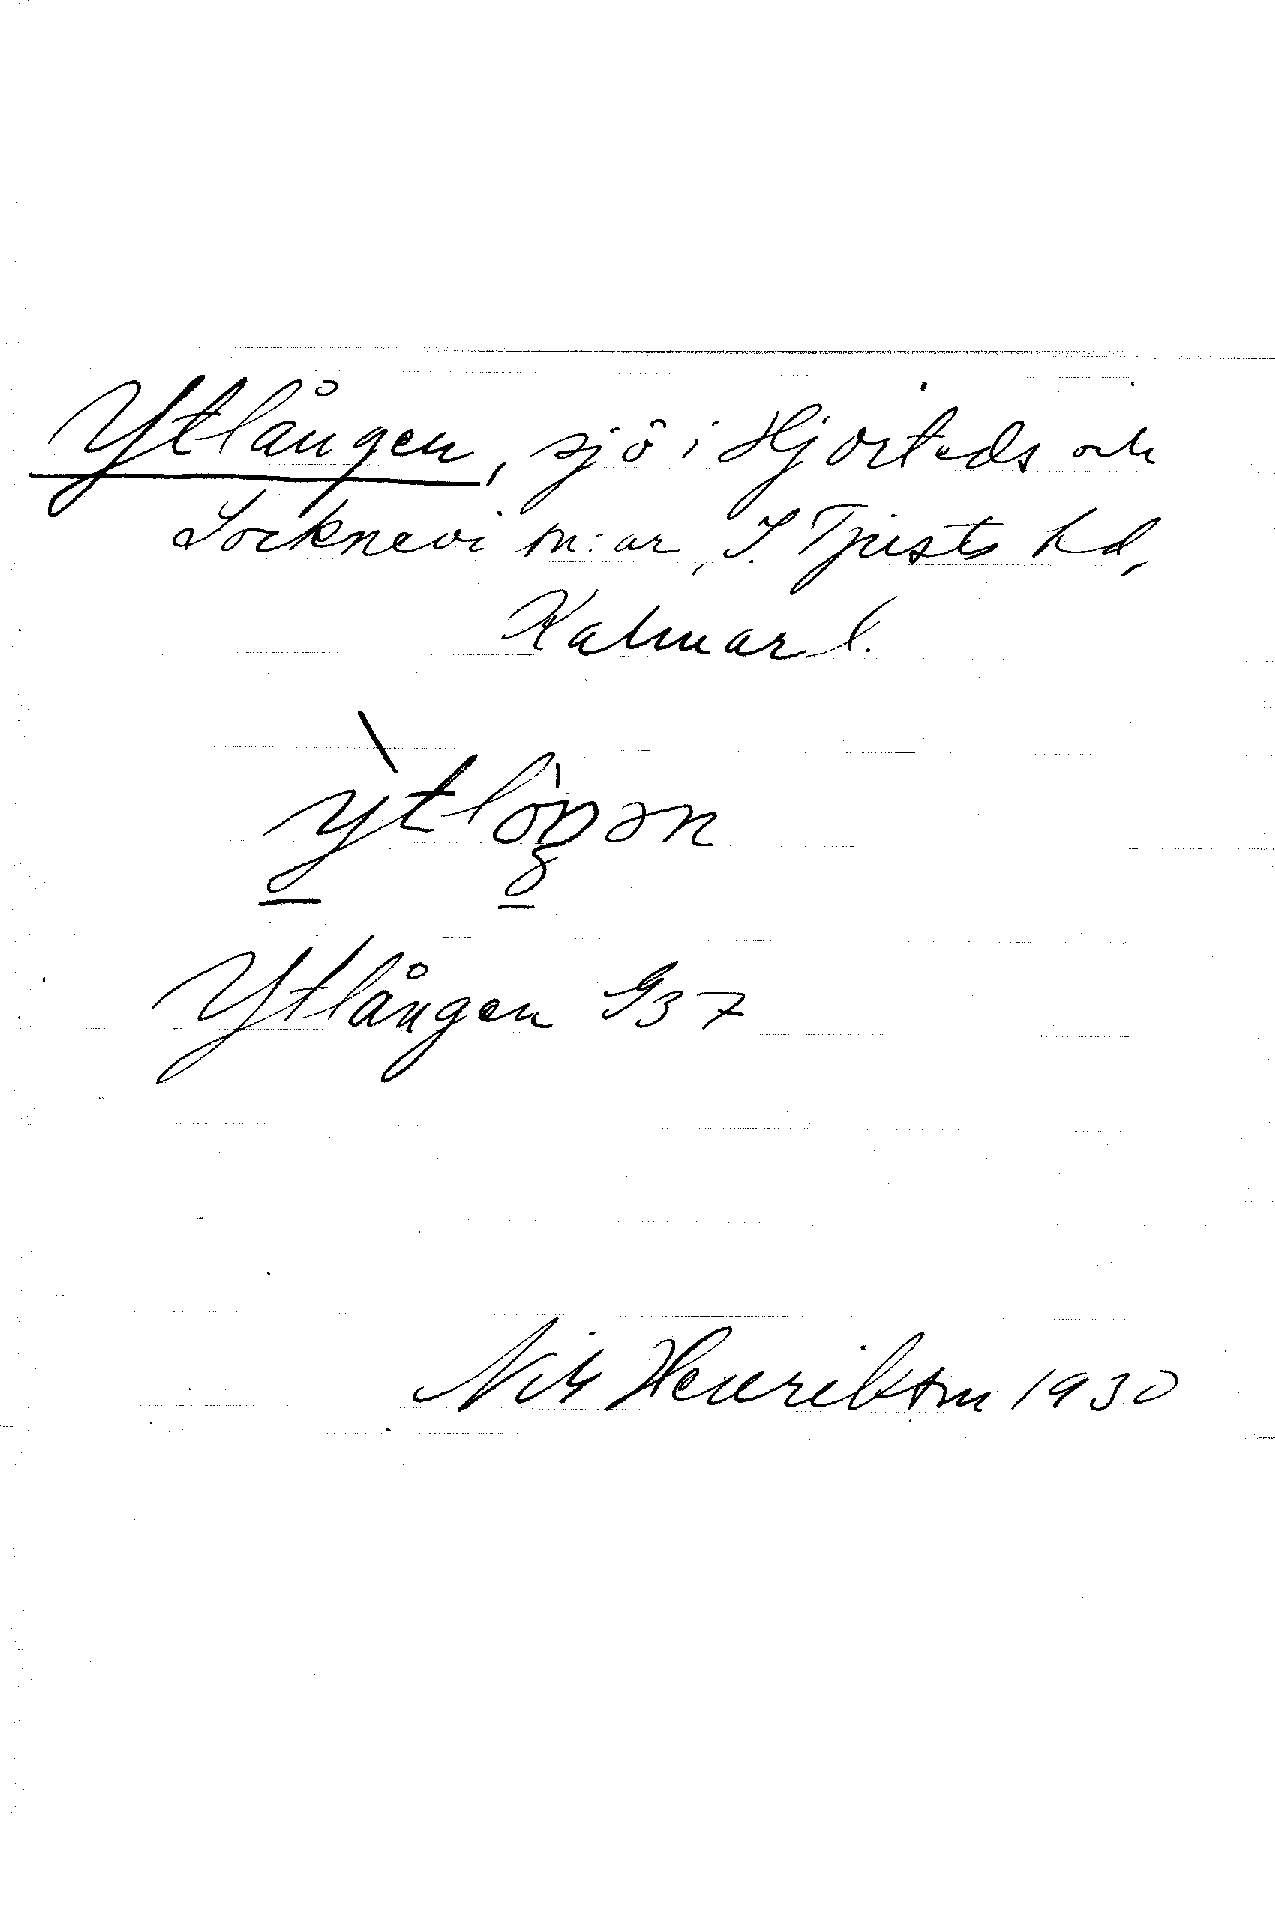 Ytlången, sjö i Hjorteds och
Locknevi sn:ar, S. Tjusts hd,
Kalmar l.
ỳtlòŋən
Ytlången G37
Nils Henrikson 1930